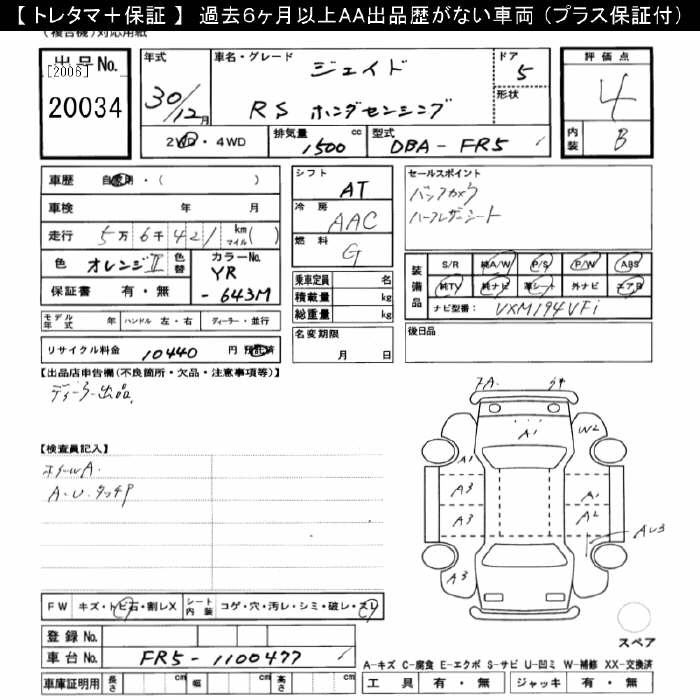 【 トレタマ＋保証 】 過去６ヶ月以上AA出品歴がない車両（プラス保証付）
(複合機)対応用紙
出品No.
[2006]
20034
年式
30/12月
車名・グレード
ジェイド
RS ホンダセンシング
ドア
5
形状
2WD・4WD
排気量
1500 cc
型式
DBA-FR5
評価点
4
内装
B
車歴 自家用・( )
車検 年 月
走行 5万 6千 4 2 1 km マイル( )
色 オレンジⅡ 色替
カラーNo.
YR
-643M
保証書 有・無
モデル年式 年 ハンドル 左・右 ディーラー・並行
リサイクル料金 10440 円 預託済
シフト
AT
冷房
AAC
燃料
G
乗車定員 名
積載量 kg
総重量 kg
名変期限
月 日
セールスポイント
バックカメラ
ハーフレザーシート
装備品
S/R 純A/W P/S P/W ABS
純TV 純ナビ 革シート 外ナビ エアB
ナビ型番: VXM194VFi
後日品
【出品店申告欄(不良箇所・欠品・注意事項等)】
ディーラー出品
【検査員記入】
ホイールA.
A・U・タッチP
FW キズ・トビ石・割レX シート内装 コゲ・穴・汚レ・シミ・破レ・スレ
登録No.
車台No. FR5-1100477
車庫証明用 長さ cm 幅 cm 高さ cm
A1
W2
A1
A3
A3
A3
A1
A2
AU3
スペア
A-キズ C-腐食 E-エクボ S-サビ U-凹ミ W-補修 XX-交換済
工具 有・無 ジャッキ 有・無